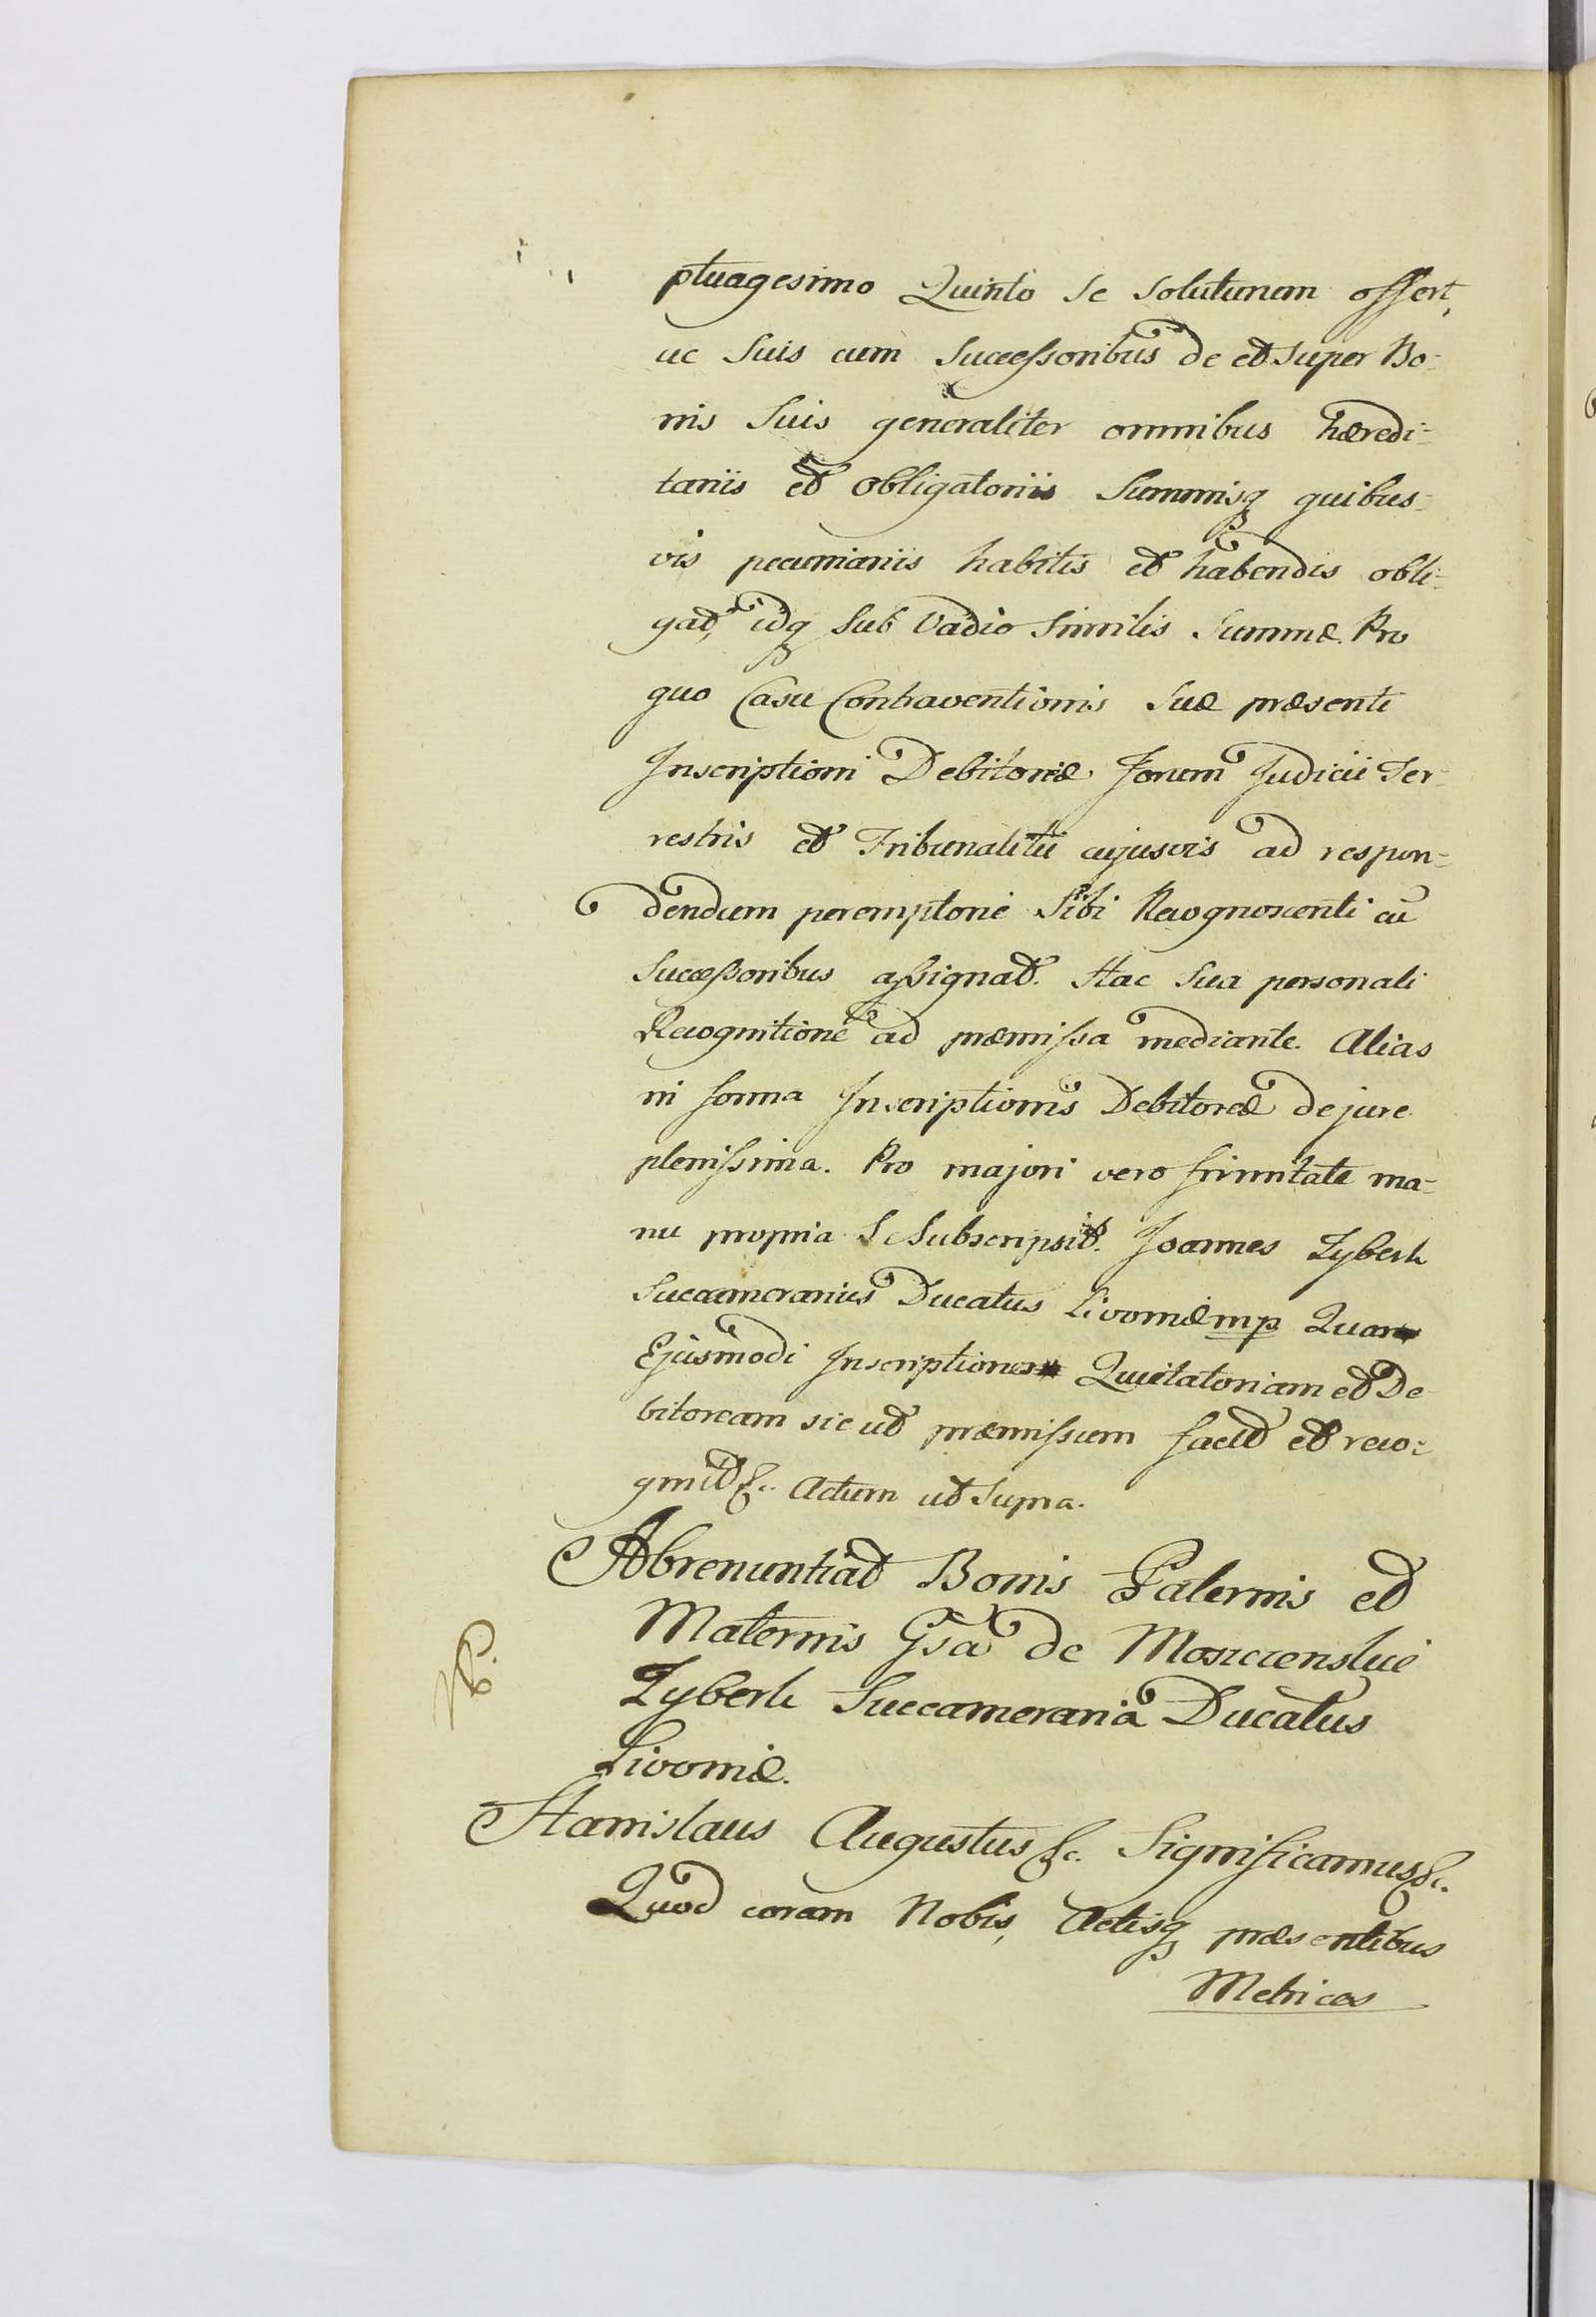 ptuagesimo Quinto se soluturum offert,
ac Suis cum Successoribus de et super Bo-
nis Suis generaliter omnibus hæredi-
tariis et obligatoriis Summisq quibus-
vis pecuniariis habitis et habendis obli-
gat, idq sub Vadio Similis Summæ. Pro
quo Casu Contraventionis Suæ præsenti
Inscriptioni Debitoriæ Forum Judicii Ter-
restris et Tribunalitii cujusvis ad respon-
dendum peremptorie Sibi Recognoscenti cū
Successoribus assignat. Hac Sua personali
Recognitione ad præmissa mediante. Alias
in forma Inscriptionis Debitoreæ de jure
plenissima. Pro majori vero firmitate ma-
nu propria Se Subscripsit. Joannes Zyberk
Succamerarius Ducatus Livoniæ mp Quam
Ejusmodi Inscriptionem Quietatoriam et De
bitoream sic ut præmissum facit et reco-
gnit &c. Actum ut Supra.
Abrenuntiat Bonis Paternis et
Maternis Gsa de Moszczenskie
Zyberk Succameraria Ducatus
Livoniæ.
Stanislaus Augustus &c. Significamus &c.
Quod coram Nobis, Actisq præsentibus
Metrices